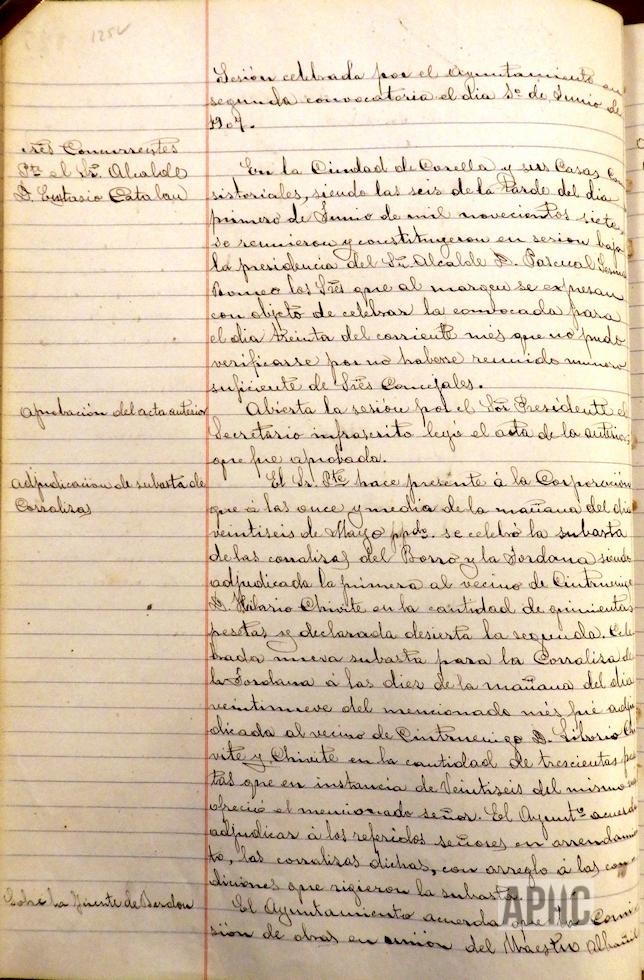 125v
Sesión celebrada por el Ayuntamiento en
segunda convocatoria el dia 1º de Junio de
1907.
Srēs Concurrentes
Pte el Sr. Alcalde
D. Eustasio Catalan
En la Ciudad de Corella y sus Casas Con
sistoriales, siendo las seis de la tarde del dia
primero de Junio de mil novecientos siete,
se reunieron y constituyeron en sesion bajo
la presidencia del Sr. Alcalde D. Pascual
Romeo los Srēs que al margen se expresan
con objeto de celebrar la convocada para
el dia treinta del corriente més que no pudo
verificarse por no haberse reunido numero
suficiente de Srēs Concejales.
aprobación del acta anterior
Abierta la sesión por el Sor Presidente el
Secretario infrascrito leyó el acta de la anterior
que fue aprobada.
adjudicacion de subasta de
Corralizas
El Sr. Pte hace presente á la Corporación
que á las once y media de la mañana del dia
veintiseis de Mayo ppdo. se celebró la subasta
de las corralizas del Borro y la Jordana siendo
adjudicada la primera al vecino de Cintruenigo
D. Hilario Chivite en la cantidad de quinientas
pesetas y declarada desierta la segunda. Cele
brada nueva subasta para la Corraliza de
la Jordana á las diez de la mañana del dia
veintinueve del mencionado més fué adju
dicada al vecino de Cintruenigo D. Liborio Chi
vite y Chivite en la cantidad de trescientas pese
tas que en instancia de Veintiseis del mismo
ofreció el mencionado señor. El Ayuntº acuerda
adjudicar á los referidos señores en arrendamien
to, las corralizas dichas, con arreglo á las con
diciones que rigieron la subasta.
Sobre la Fuente de
El Ayuntamiento acuerda que la Comi
sión de obras en unión del Maestro Albañil
APHC